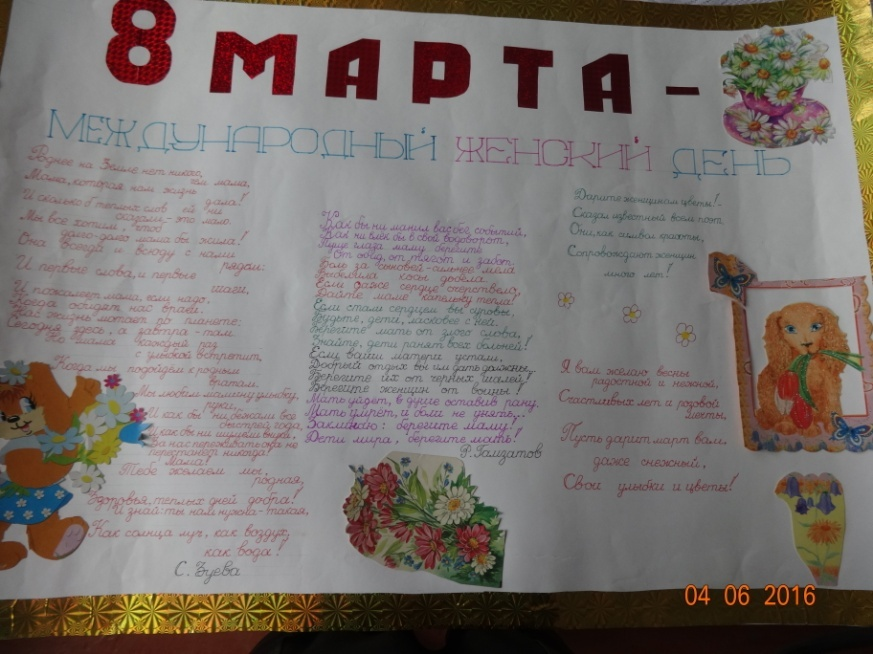 8 МАРТА -
МЕЖДУНАРОДНЫЙ ЖЕНСКИЙ ДЕНЬ
Роднее на Земле нет никого,
чем мама,
Мама, которая нам жизнь
дала!
И сколько б тёплых слов ей ни
сказали - это мало.
Мы все хотим, чтоб
долго-долго мама бы жила!
Она всегда и всюду с нами
рядом:
И первые слова, и первые
шаги,
И пожалеет мама, если надо.
Когда обидят нас враги.
Нас жизнь мотает по планете:
Сегодня здесь, а завтра - там
Но мама каждый раз
с улыбкой встретит,
Когда мы подойдём к родным
вратам.
Мы любим мамину улыбку,
руки,
И как бы ни бежали все
быстрей года,
И как бы ни шумели внуки,
За нас переживать она не
перестанет никогда!
Мама!
Тебе желаем мы,
родная,
Здоровья, тёплых дней добра!
И знай: ты нам нужна - такая,
Как солнца луч, как воздух,
как вода!
С. Зуева
Как бы ни манил вас бег событий,
Как ни влёк бы в свой водоворот,
Пуще глаза маму берегите
От обид, от тягот и забот.
Боль за сыновей - сильнее мела
Выбелила косы добела.
Если даже сердце очерствело,
Дайте маме капельку тепла!
Если стали сердцем вы суровы,
Будьте, дети, ласковее с ней.
Берегите мать от злого слова,
Знайте, дети ранят всех больней!
Если ваши матери устали,
Добрый отдых вы им дать должны,
Берегите их от чёрных шалей!
Берегите женщин от войны!
Мать уйдёт, в душе оставив рану.
Мать умрёт, и боли не унять...
Заклинаю: берегите маму!
Дети мира, берегите мать!
Р. Гамзатов
Дарите женщинам цветы! -
Сказал известный всем поэт
Они, как символ красоты,
Сопровождают женщин
много лет!
Я вам желаю весны
радостной и нежной,
Счастливых лет и розовой
мечты,
Пусть дарит март вам,
даже снежный,
Свои улыбки и цветы!
04 06 2016